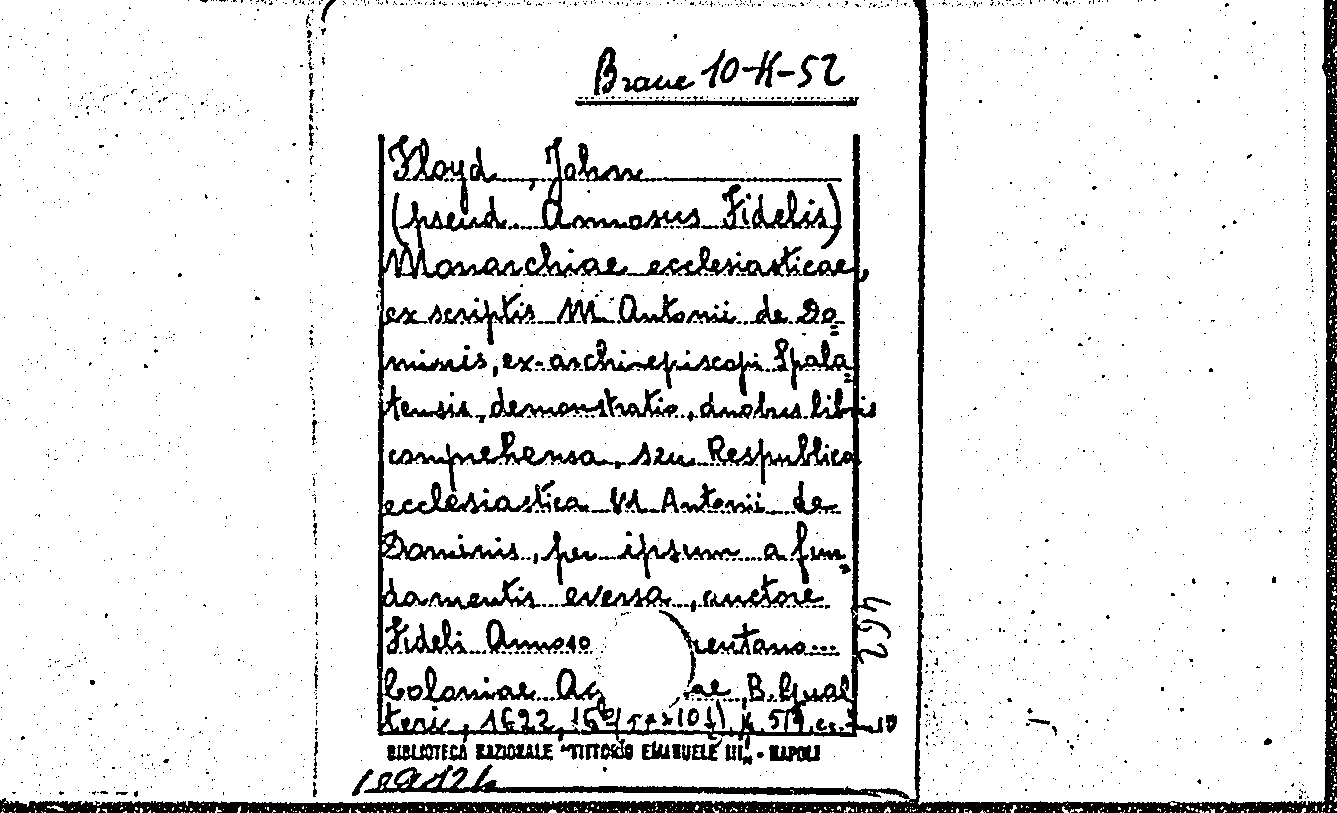 Brave 10-H-52
Floyd, John
(pseud. Annosus Fidelis)
Monarchiae ecclesiasticae,
ex scriptis M. Antonii de Do=
minis, ex-archiepiscopi Spala=
tensis, demonstratio, duobus libris
comprehensa, seu Respublica
ecclesiastica M. Antonii de
Dominis, per ipsum a fun=
damentis eversa, auctore
Fideli Annoso rentano...
Coloniae Ag ae, B. Gual
teri, 1622, 16°
BIBLIOTECA NAZIONALE "VITTORIO EMANUELE III" - NAPOLI